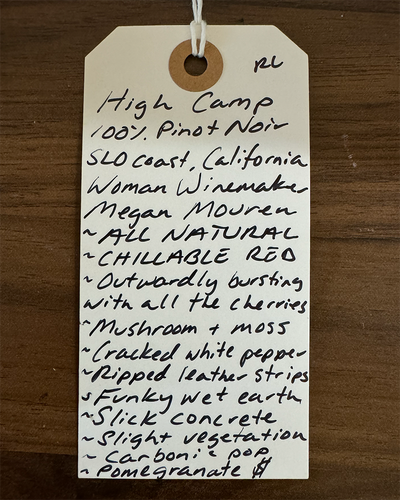 RL
High Camp
100% Pinot Noir
SLO coast, California
Woman Winemaker
Megan Mouren
~ ALL NATURAL
~ CHILLABLE RED
~ Outwardly bursting
with all the cherries
~ Mushroom + moss
~ Cracked white pepper
~ Ripped leather strips
~ Funky wet earth
~ Slick concrete
~ Slight vegetation
~ Carbonic pop
~ Pomegranate $